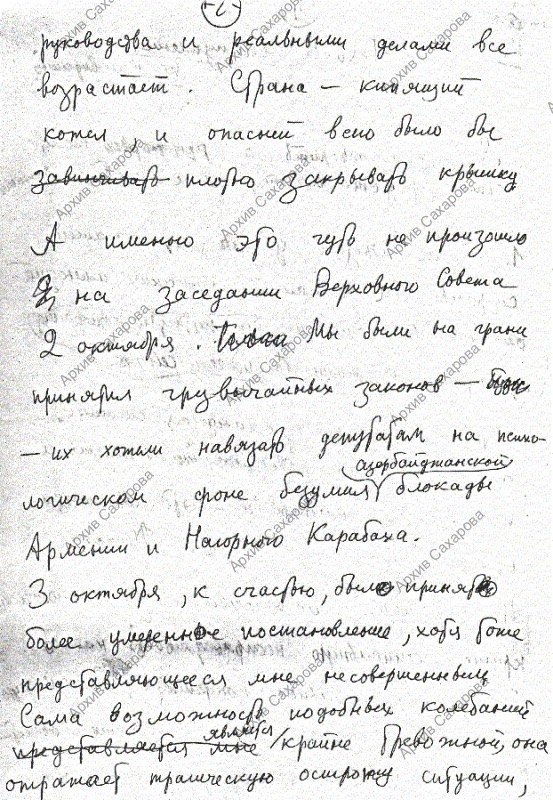 -2-
руководства и реальными делами все
возрастает. Страна – кипящий
котел, и опасней всего было бы
завинчивать плотно закрывать крышку
А именно это чуть не произошло
на заседании Верховного Совета
2 октября. Мы были на грани
принятия чрезвычайных законов –
– их хотели навязать депутатам на психо-
логическом фоне безумия азербайджанской блокады
Армении и Нагорного Карабаха.
3 октября, к счастью, было принято
более умеренное постановление, хотя тоже
представляющееся мне несовершенным
Сама возможность подобных колебаний
представляется мне является крайне тревожной, она
отражает трагическую остроту ситуации,
Архив Сахарова